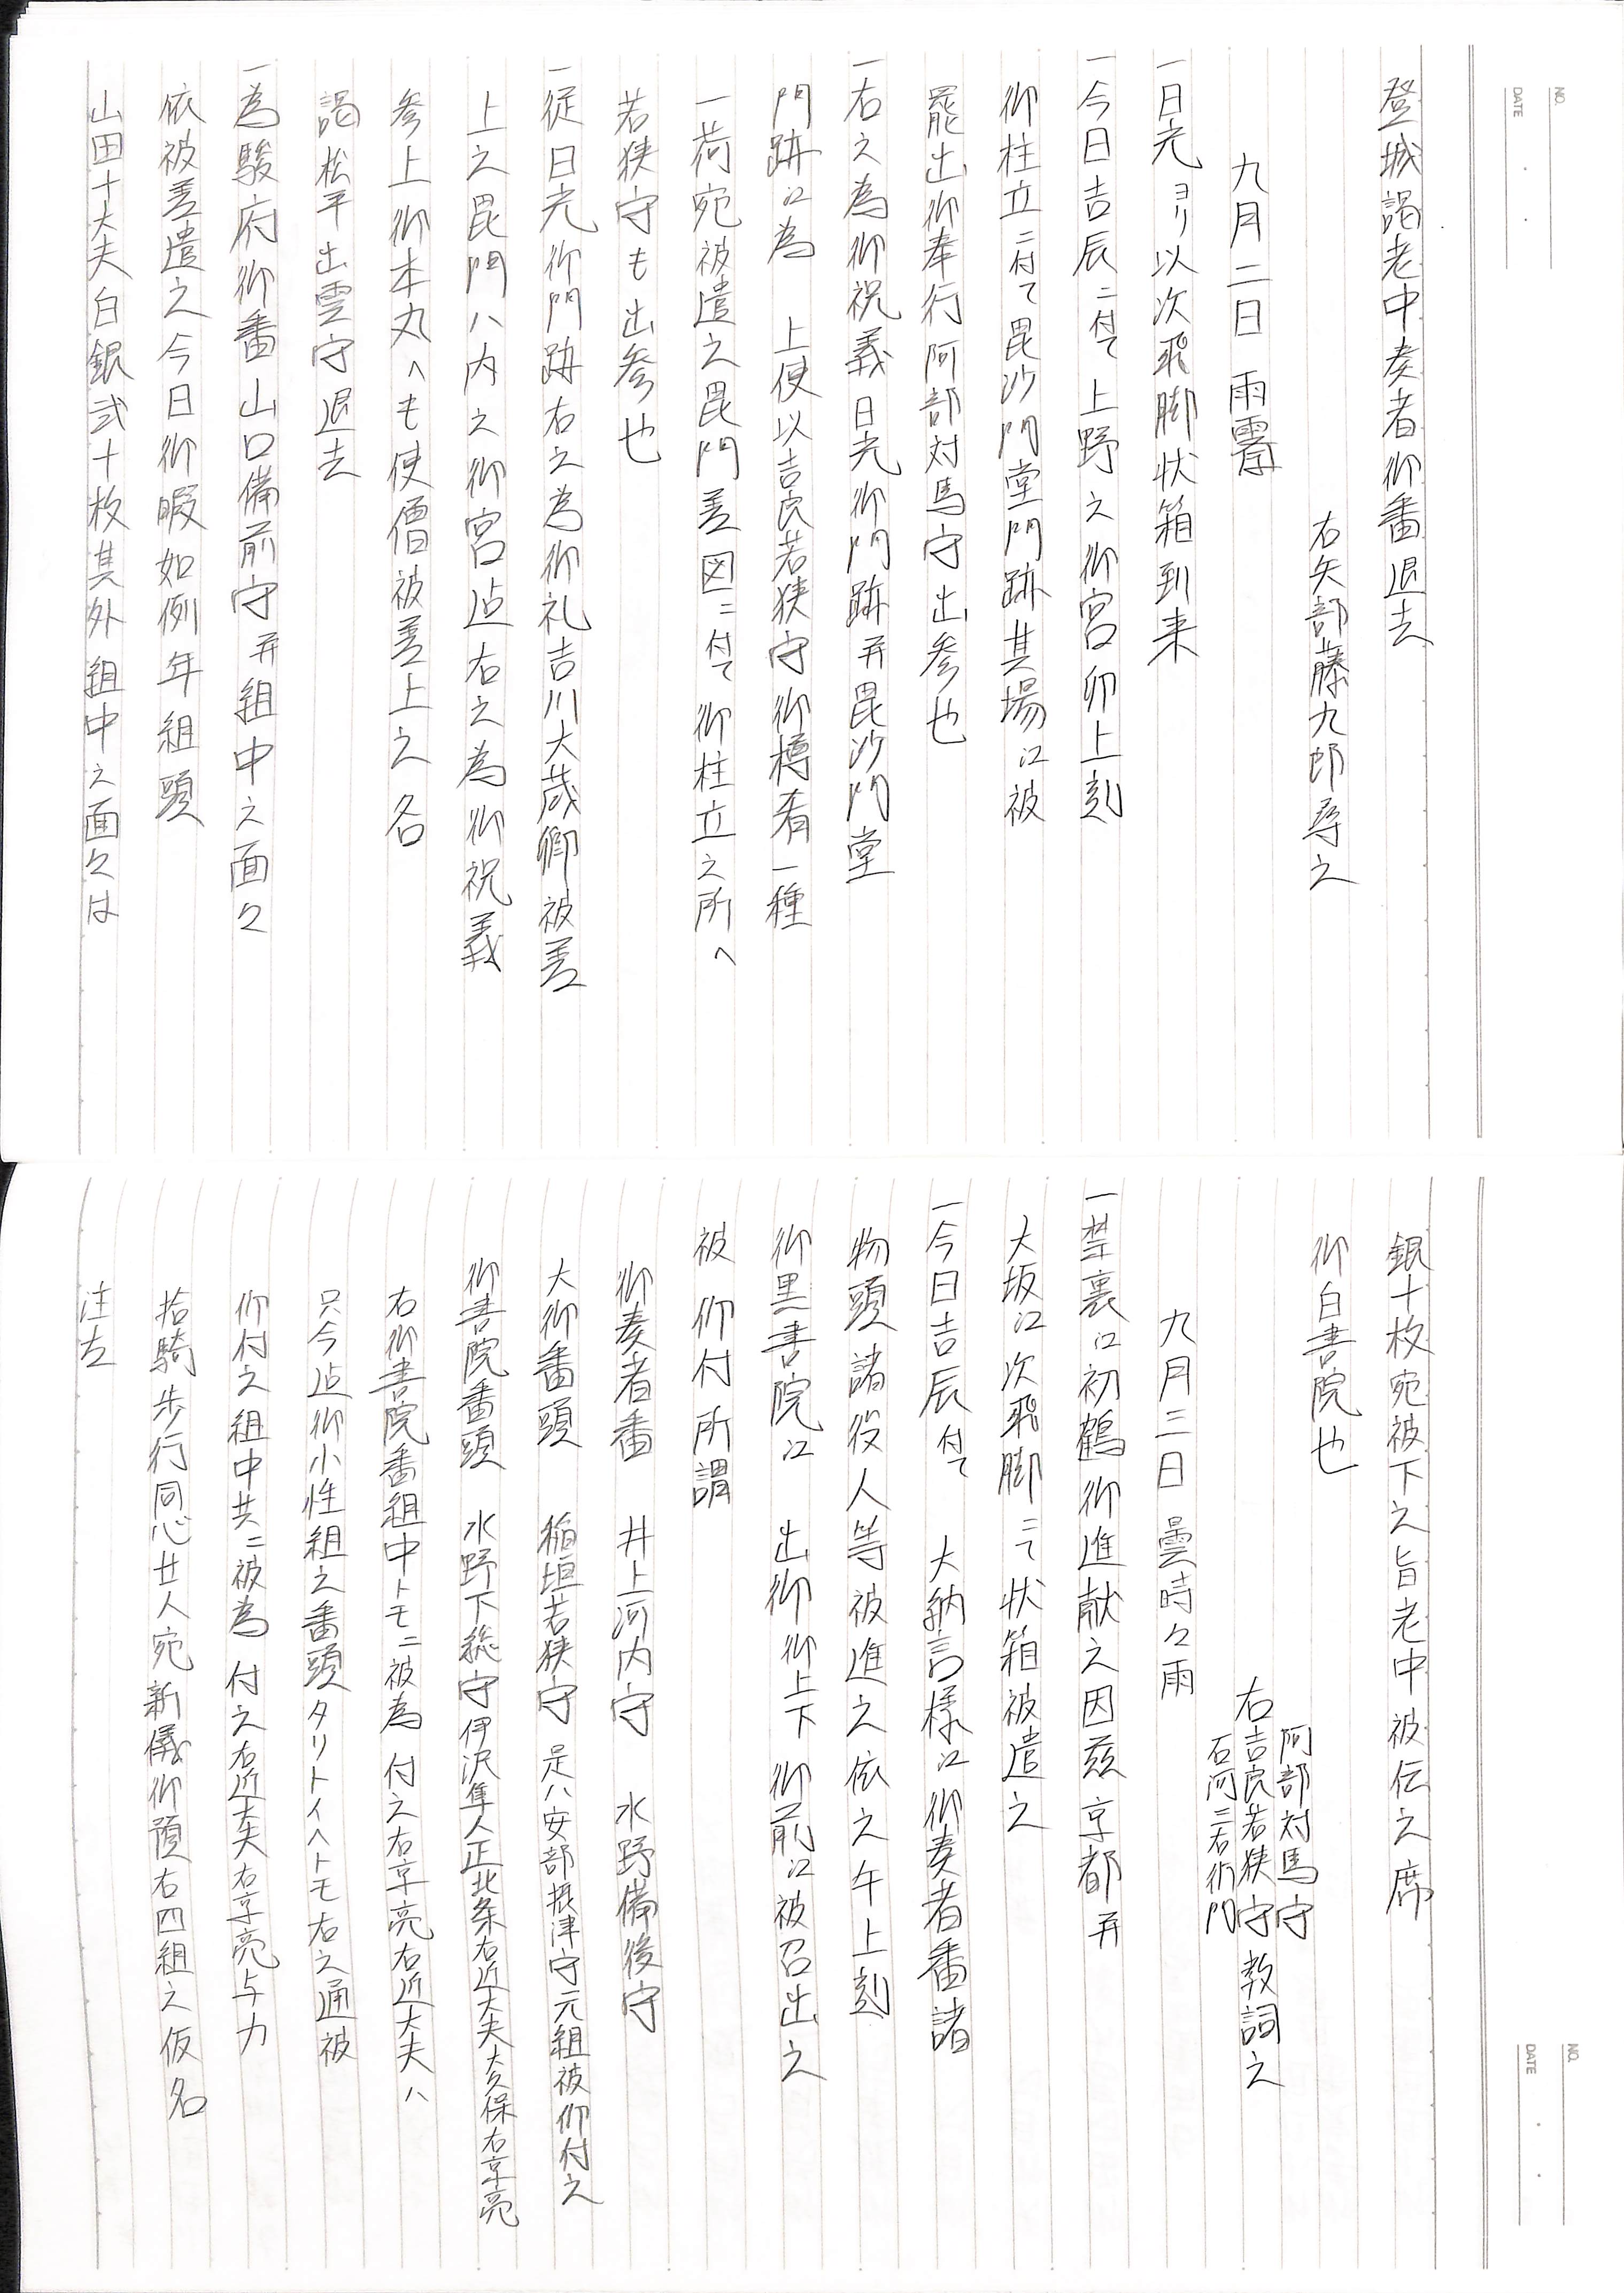 登城謁老中奏者御番退去
右矢部藤九郎尋之
九月二日 雨霽
一日光ヨリ以次飛脚状箱到来
一今日吉辰ニ付て上野之御宮卯上刻
御柱立ニ付て毘沙門堂門跡其場江被
罷出御奉行阿部対馬守出参也
一右之為御祝義日光御門跡并毘沙門堂
門跡江為 上使以吉良若狭守御樽肴一種
一荷宛被遣之毘門差図ニ付て御柱立之所へ
若狭守も出参也
一従日光御門跡右之為御礼吉川大蔵卿被差
上之毘門ハ内之御宮迠右之為御祝義
参上御本丸へも使僧被差上之各
謁松平出雲守退去
一為駿府御番山口備前守并組中之面々
依被差遣之今日御暇如例年組頭
山田十大夫白銀弐十枚其外組中之面々は
銀十枚宛被下之旨老中被伝之席
御白書院也
阿部対馬守
右吉良若狭守 教詞之
石河三右衛門
九月三日 曇時々雨
一禁裏江初鶴御進献之因茲京都并
大坂江次飛脚ニて状箱被遣之
一今日吉辰付て 大納言様江御奏者番諸
物頭諸役人等被進之依之午上刻
御黒書院江 出御御上下 御前江被召出之
被 仰付所謂
御奏者番 井上河内守 水野備後守
大御番頭 稲垣若狭守 足ハ安部摂津守元組被仰付之
御書院番頭 水野下総守伊沢隼人正北条右近大夫大久保右京亮
右御書院番組中トモニ被為 付之右京亮右近大夫ハ
只今迠御小性組之番頭タリトイヘトモ右之通被
仰付之組中共ニ被為 付之右近大夫右京亮与力
拾騎歩行同心廿人宛新儀御預右四組之仮名
注左
NO.
DATE
NO.
DATE